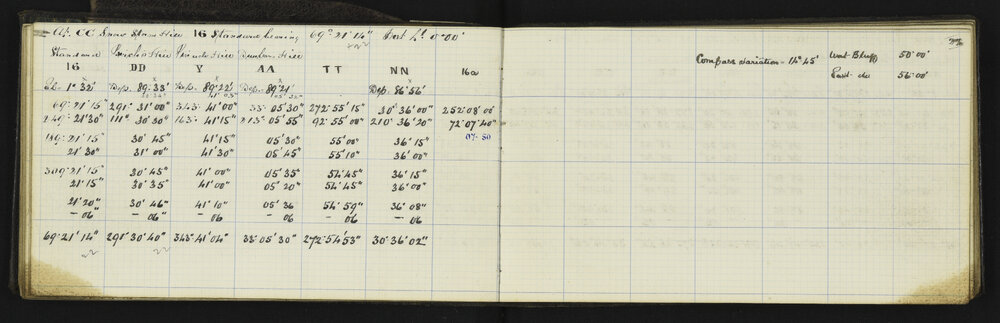 At CC Snow 16 Standard bearing 69° 21' 14" Inst Ht 0' 00'
Standard Dunbar Hill Compass Variation - 14° 45' West Bluff 50° 00'
16 DD Y AA TT NN 16a East do 56° 00'
1° 32' Dep. 89° 33' Dep. 89° 22' Dep. 89° 21' Dep. 86° 56'
69° 21' 15" 291° 31' 00" 343° 41' 00" 33° 05' 30" 272° 55' 15" 30° 36' 00" 252° 08' 00"
249° 21' 30" 111° 30' 30" 163° 41' 15" 213° 05' 55" 92° 55' 00" 210° 36' 20" 72° 07' 40"
189° 21' 15" 30' 45" 41' 15" 05' 30" 55' 00" 36' 15" 07' 50
21' 30" 31' 00" 41' 30" 05' 45" 55' 10" 36' 00"
309° 21' 15" 30' 45" 41' 00" 05' 35" 54' 45" 36' 15"
21' 15" 30' 35" 41' 00" 05' 20" 54' 45" 36' 00"
21' 20" 30' 46" 41' 10" 05' 36 54' 59" 36' 08"
- 06" - 06" - 06 - 06 - 06 - 06
69° 21' 14" 291° 30' 40" 343° 41' 04" 33° 05' 30" 272° 54' 53" 30° 36' 02"